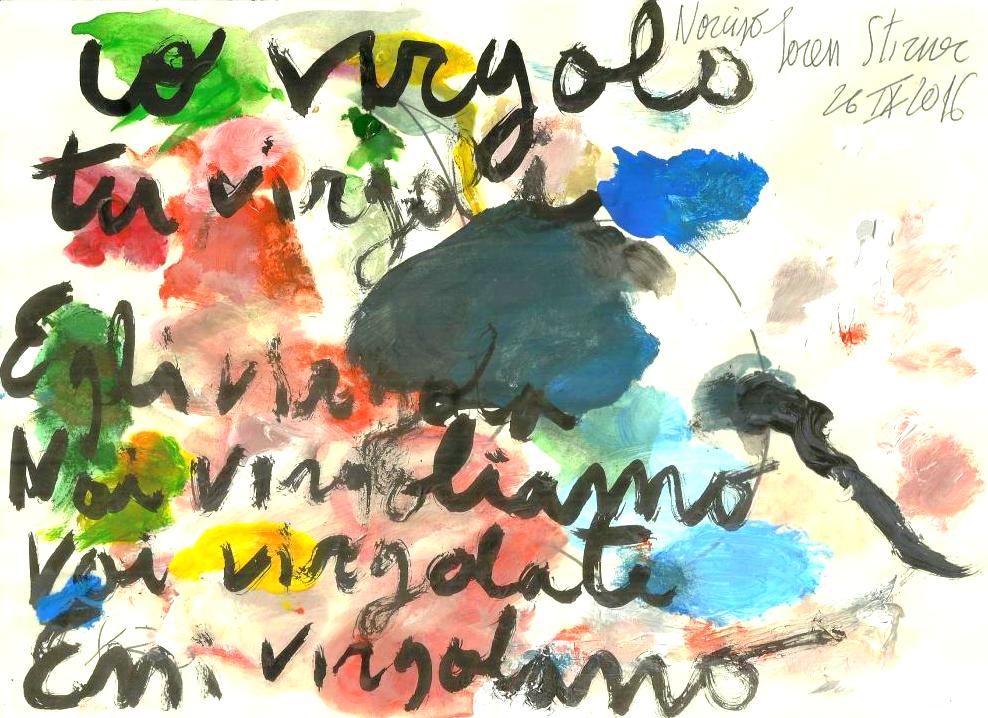 io virgolo
tu virgoli
Egli virgola
Noi virgoliamo
Voi virgolate
Essi virgolano
Soren Stirner
26 IX 2016